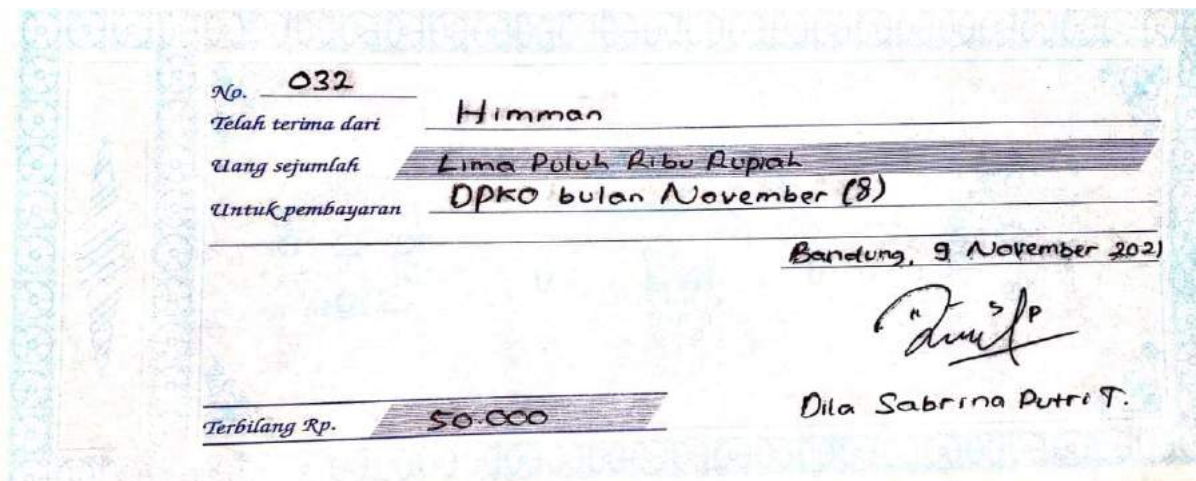 No. 032
Telah terima dari Himman
Uang sejumlah Lima Puluh Ribu Rupiah
Untuk pembayaran DPKO bulan November (8)
Bandung, 9 November 2021
Dila Sabrina Putri T.
Terbilang Rp. 50.000